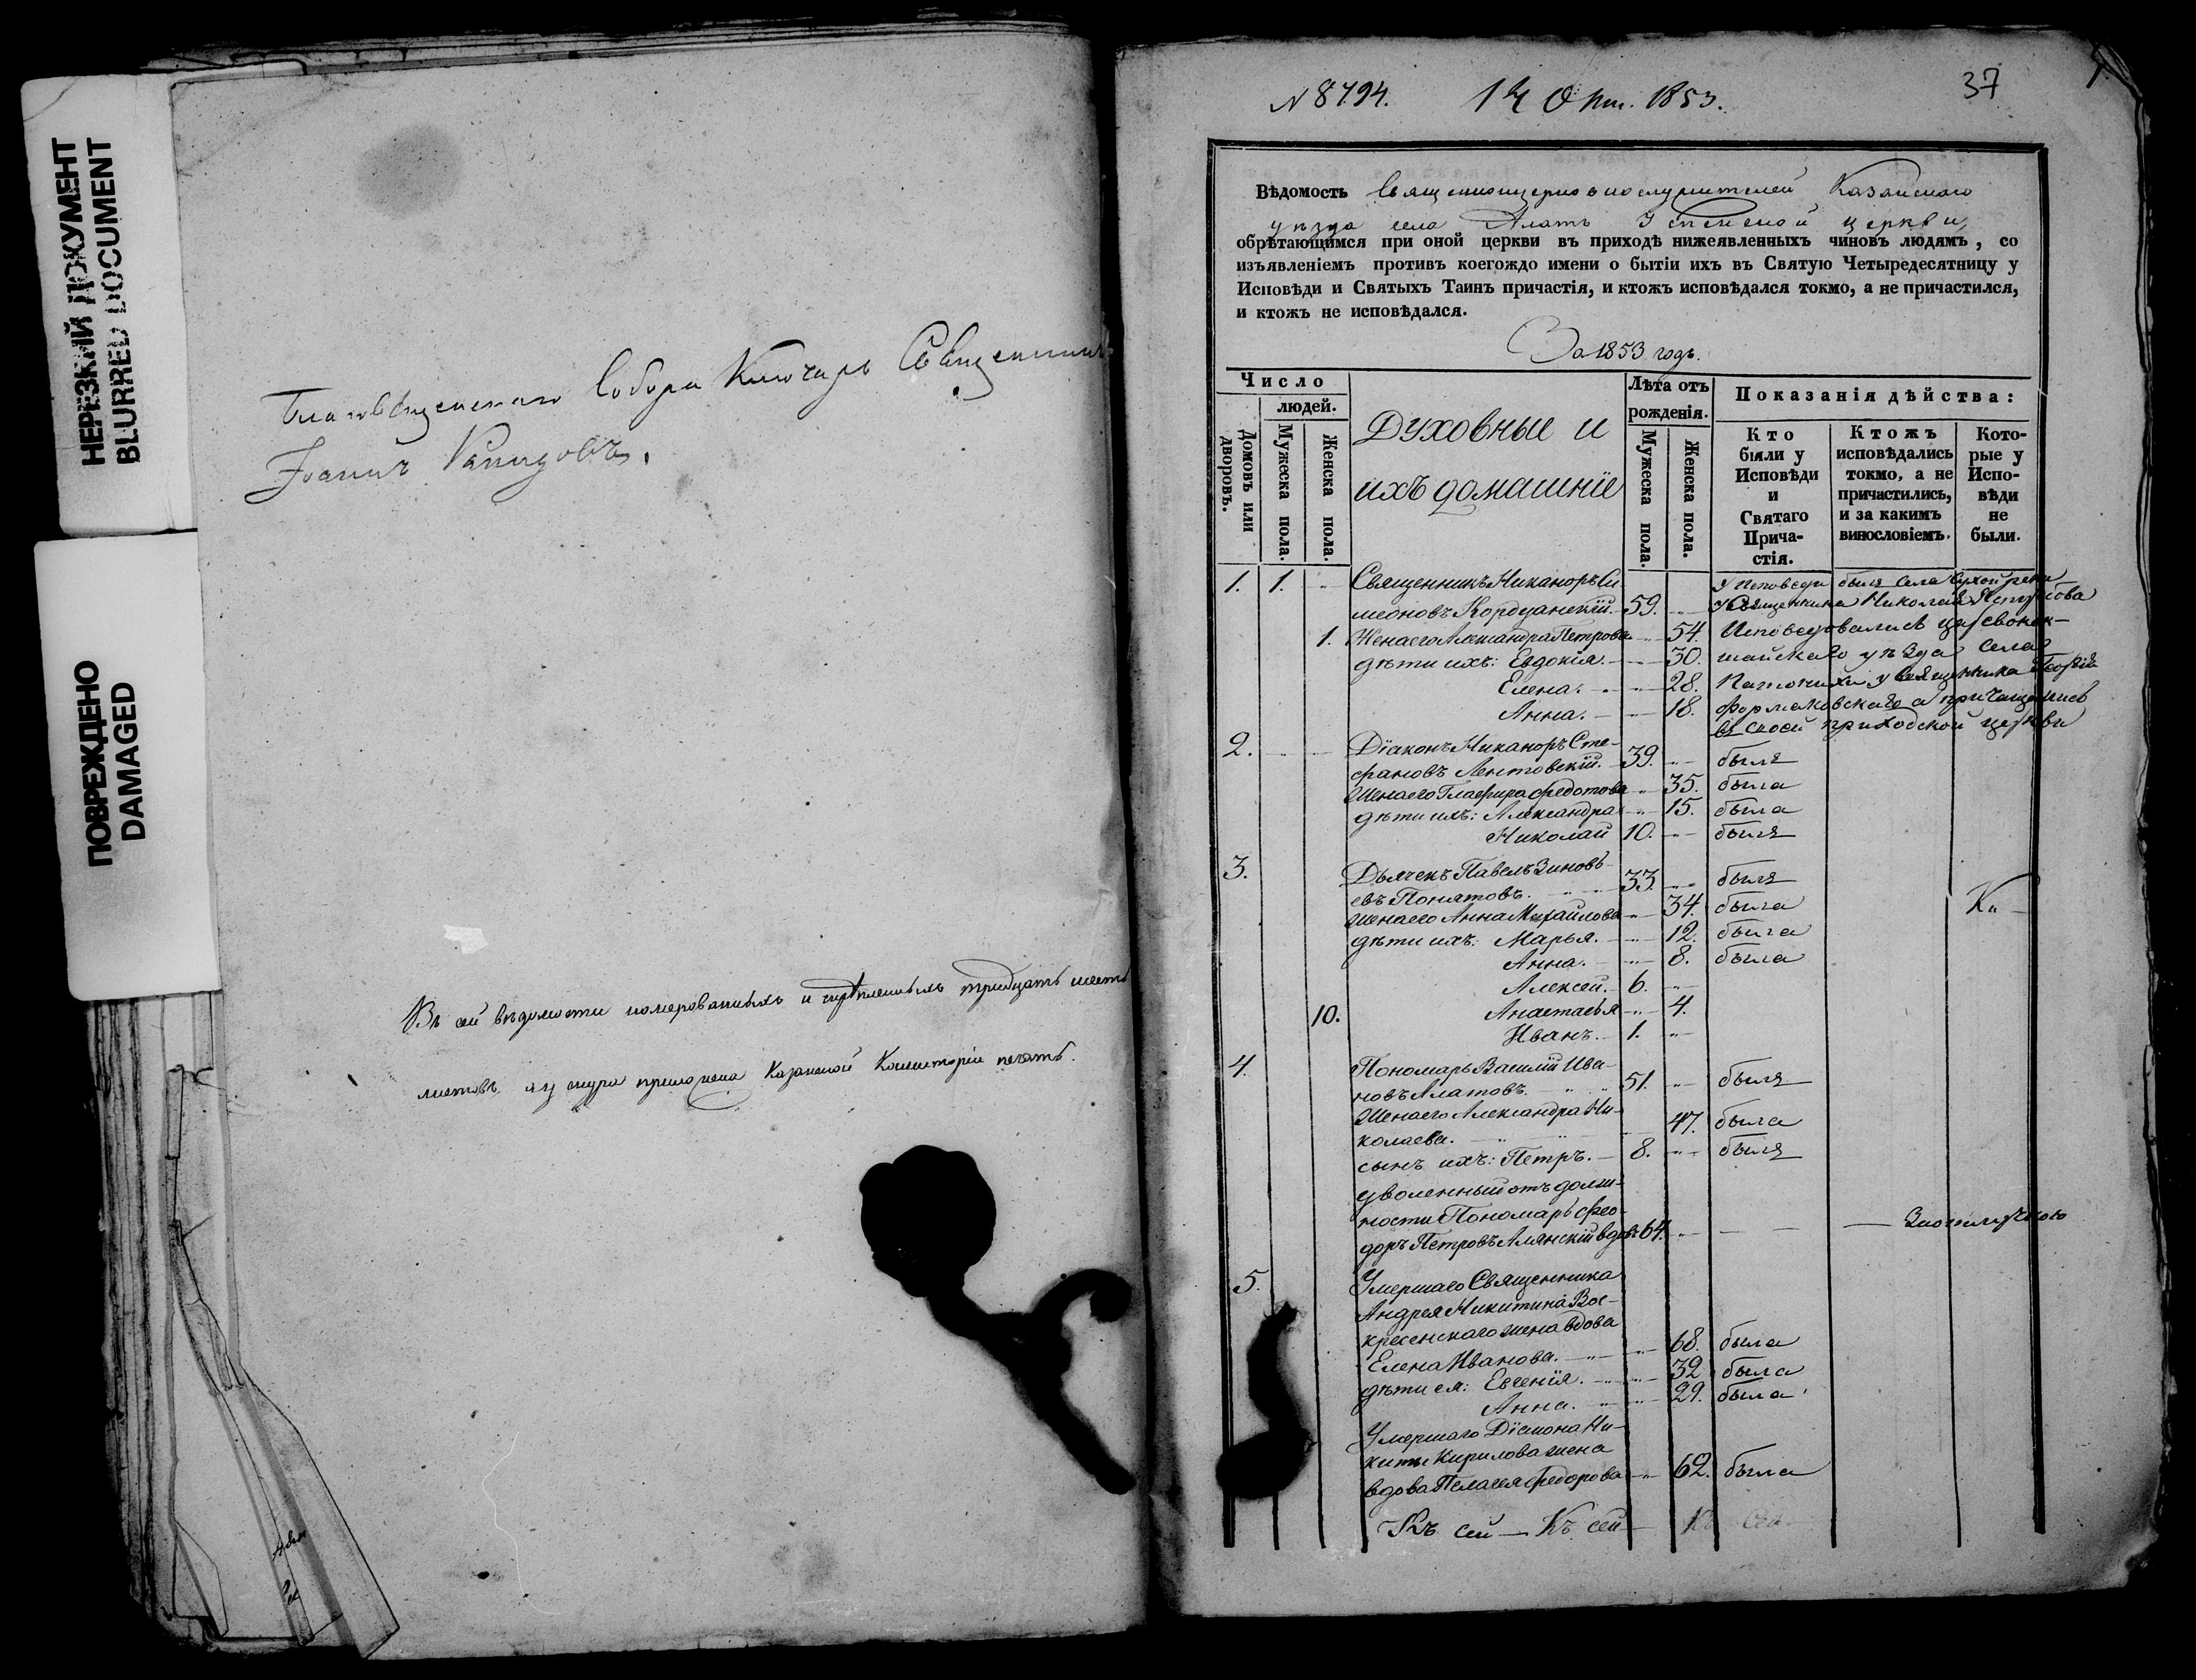 НЕРЕЗКИЙ ДОКУМЕНТ
BLURRED DOCUMENT
ПОВРЕЖДЕНО
DAMAGED
Благовѣщенскаго Собора Ключарь Священникъ
Іоаннъ
Въ сей вѣдомости номерованныхъ и скрѣпленныхъ тридцать шесть
листовъ, къ шнуру приложена Казанской Консисторіи печать.
N 8794. 14 Окт. 1853. 37
Вѣдомость Священноцерковнослужителей Казанскаго
уѣзда села Алатъ Успенской церкви,
обрѣтающимся при оной церкви въ приходѣ нижеявленныхъ чиновъ людямъ, со
изъявленіемъ противъ коегождо имени о бытіи ихъ въ Святую Четыредесятницу у
Исповѣди и Святыхъ Таинъ причастія, и ктожъ исповѣдался токмо, а не причастился,
и ктожъ не исповѣдался.
За 1853 годъ.
Число
людей.
Домовъ или дворовъ.
Мужеска пола.
Женска пола.
Духовные и
ихъ домашніе
Лѣта отъ
рожденія.
Мужеска пола.
Женска пола.
Показанія дѣйства:
Кто
были у
Исповѣди
и
Святаго
Прича-
стія.
Ктожъ
исповѣдались
токмо, а не
причастились,
и за какимъ
винословіемъ.
Кото-
рые у
Испо-
вѣди
не
были.
1. 1. Священникъ Никаноръ Си- У Исповеди былъ села Сухой реки
меоновъ Кордуанскій. 59. у Священника Николая
1. Жена его Александра Петрова 54. Исповедовались
дѣти ихъ: Евдокія. 30. шайскаго уѣзда села
Елена. 28. у Священника Георгія
Анна. 18. а причащались
въ своей приходской церкви
2. Діаконъ Никаноръ Сте-
фановъ Лентовскій. 39. былъ
Жена его Глафира Федотова 35. была
дѣти ихъ: Александра 15. была
Николай 10. былъ
3. Дьячекъ Павелъ Зиновь-
евъ Понятовъ. 33. былъ
Жена его Анна Михайлова 34. была
дѣти ихъ: Марья. 12. была
Анна. 8. была
Алексей. 6.
10. Анастасья 4.
Иванъ. 1.
4. Пономарь Василій Ива-
новъ Алатовъ. 51. былъ
Жена его Александра Ни-
колаева. 47. была
сынъ ихъ: Петръ. 8. былъ
уволенный отъ долж-
ности Пономарь Фео-
доръ Петровъ Алянскій вдовъ 64.
5. Умершаго Священника
Андрея Никитина Вос-
кресенскаго жена вдова
Елена Иванова. 68. была
дѣти ея: Евгенія. 32. была
Анна. 29. была
Умершаго Діакона Ни-
киты Кирилова жена
вдова Пелагея Федорова 62. была
Къ сей Къ сей Къ сей